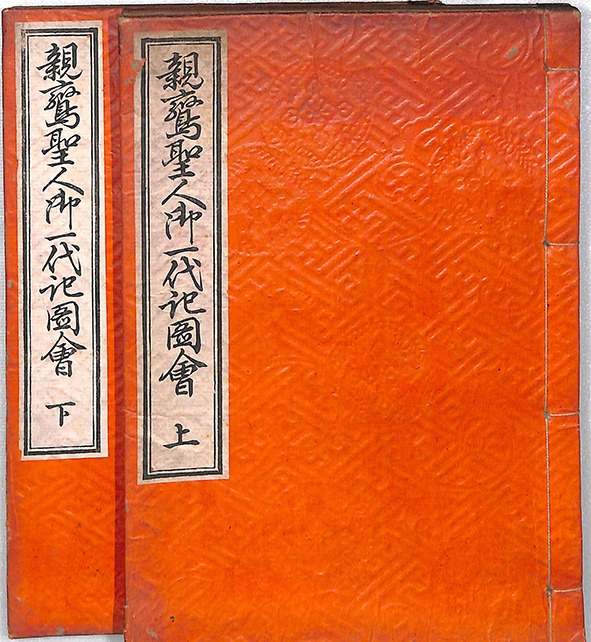 親鸞聖人御一代記圖會 上
親鸞聖人御一代記圖會 下